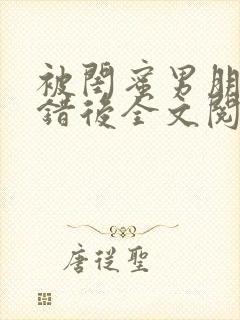 被閨蜜男朋
錯後全文閱
唐從聖